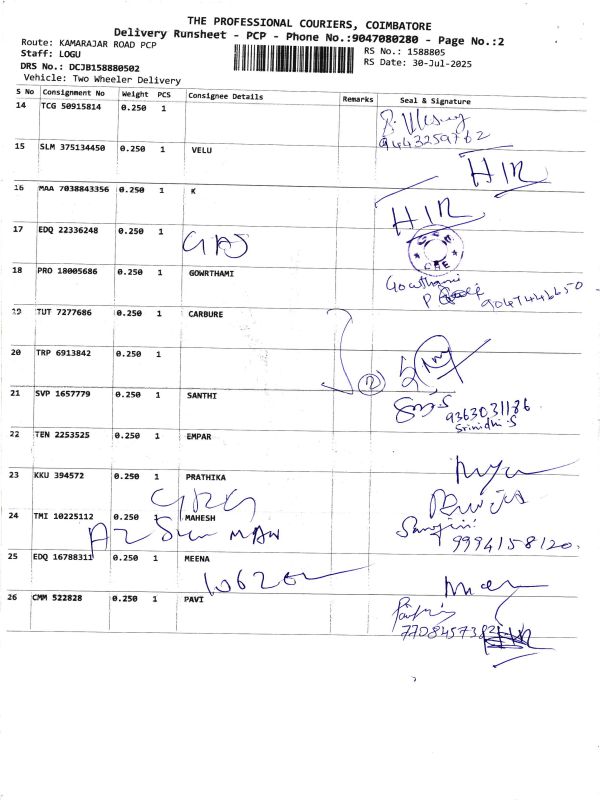 THE PROFESSIONAL COURIERS, COIMBATORE
Delivery Runsheet - PCP - Phone No.:9047080280 - Page No.:2
Route: KAMARAJAR ROAD PCP
RS No.: 1588805
Staff: LOGU
RS Date: 30-Jul-2025
DRS No.: DCJB158880502
Vehicle: Two Wheeler Delivery
S No Consignment No Weight PCS Consignee Details Remarks Seal & Signature
14 TCG 50915814 0.250 1
9443259762
15 SLM 375134450 0.250 1 VELU
16 MAA 7038843356 0.250 1 K
17 EDQ 22336248 0.250 1
18 PRO 18005686 0.250 1 GOWRTHAMI
Gowthami
19 TUT 7277686 0.250 1 CARBURE
20 TRP 6913842 0.250 1
21 SVP 1657779 0.250 1 SANTHI
9363031186
Srinidhi.S
22 TEN 2253525 0.250 1 EMPAR
23 KKU 394572 0.250 1 PRATHIKA
24 TMI 10225112 0.250 1 MAHESH
9994158120.
25 EDQ 16788311 0.250 1 MEENA
26 CMM 522828 0.250 1 PAVI